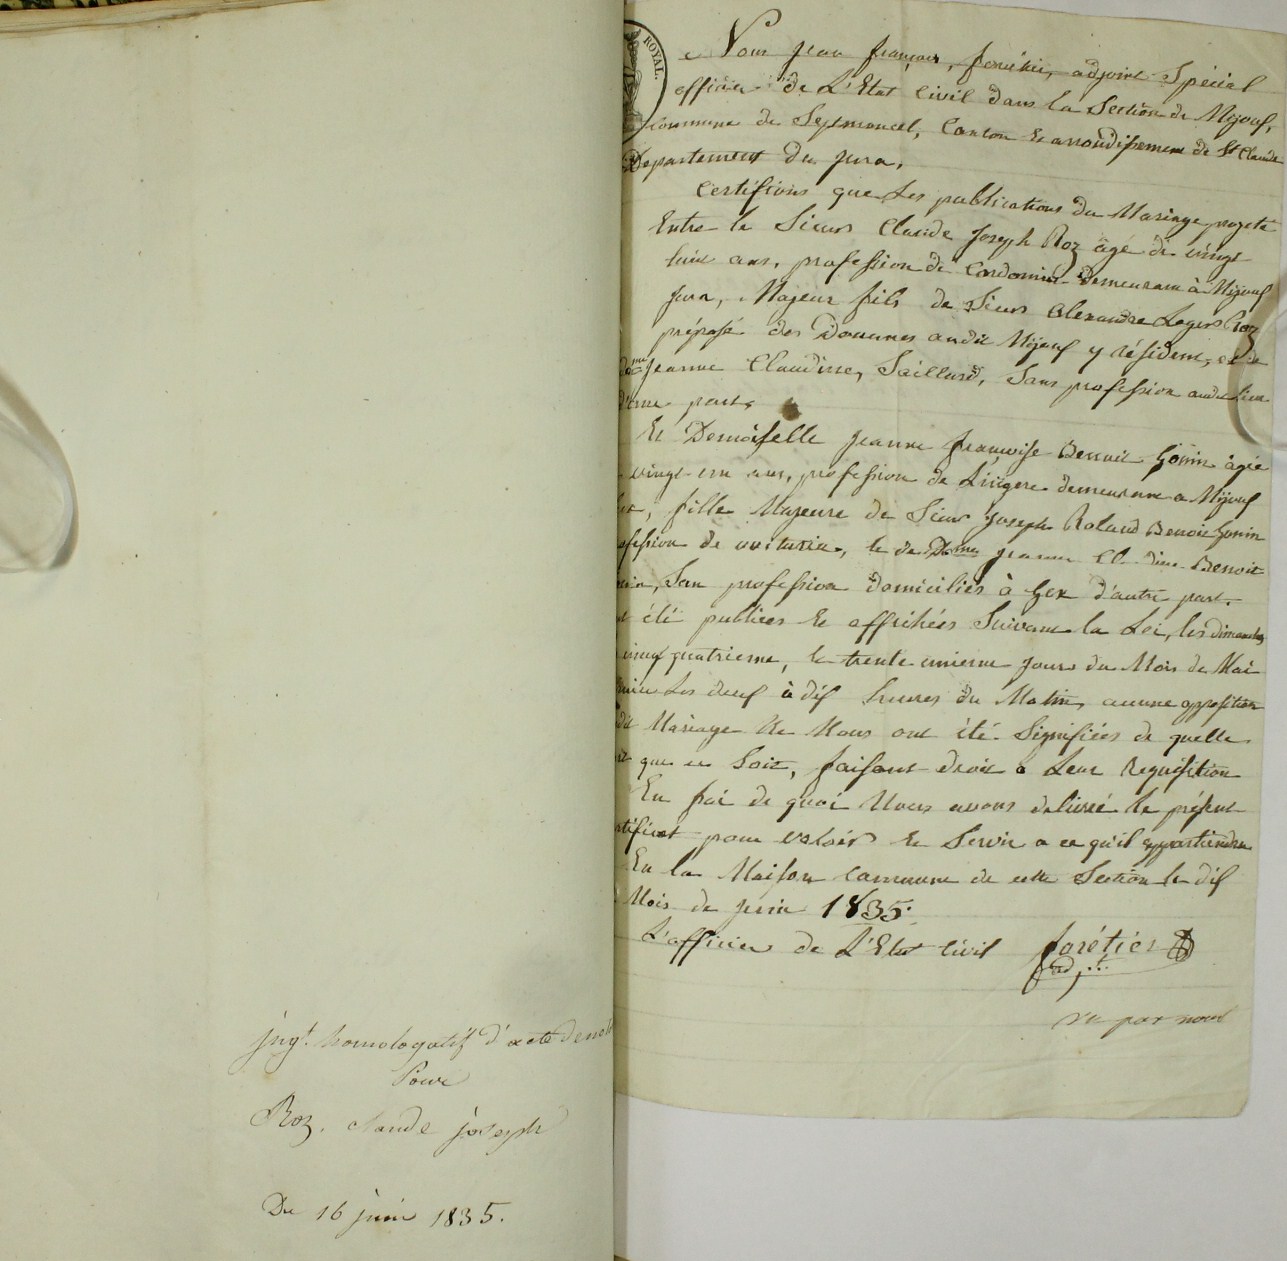 jugt. homologatif d'acte de not
Pour
Roz. claude joseph
Du 16 juin 1835.
ROYAL.
Nous jean françois, forétier, adjoint Spécial
officier de L'Etat Civil dans la Section de Mijouf,
commune de Septmoncel, Canton et arrondissement de St Claude
Departement du jura,
Certifions que Les publications du Mariage projeté
Entre le Sieur Claude Joseph Roz âgé de vingt
huit ans, profession de Cordonnier Demeurant à Mijouf
jura, Majeur fils de Sieur Alexandre Leger Roz
préposé des Douanes audit Mijouf y résident, et de
jeanne Claudine, Saillard, Sans profession audit Lieu
d'une part,
Et Demoiselle jeanne françoise Benoit Gonin âgée
vingt un ans, profession de Lingere demeurant a Mijouf
fille Majeure de Sieur Joseph Roland Benoit Gonin
profession de voiturier, et de Dame jeanne Cl dine Benoit
San profession domiciliés à Gex d'autre part.
été publiées et affichées Suivant la Loi, les dimanches
vingt quatrieme, et trente unieme jours du Mois de Mai
Les neuf à dix heures du Matin, aucune opposition
dit Mariage Ne Nous ont été Signifiées de quelle
que ce Soit, faisant droit a Leur Requisition
En foi de quoi Nous avons delivré le présent
certificat pour valoir et Servir a ce qu'il appartiendra
En la Maison Commune de cette Section le dix
Mois de juin 1835.
L'officier de L'Etat Civil forétier
adj.t.
vu par nous